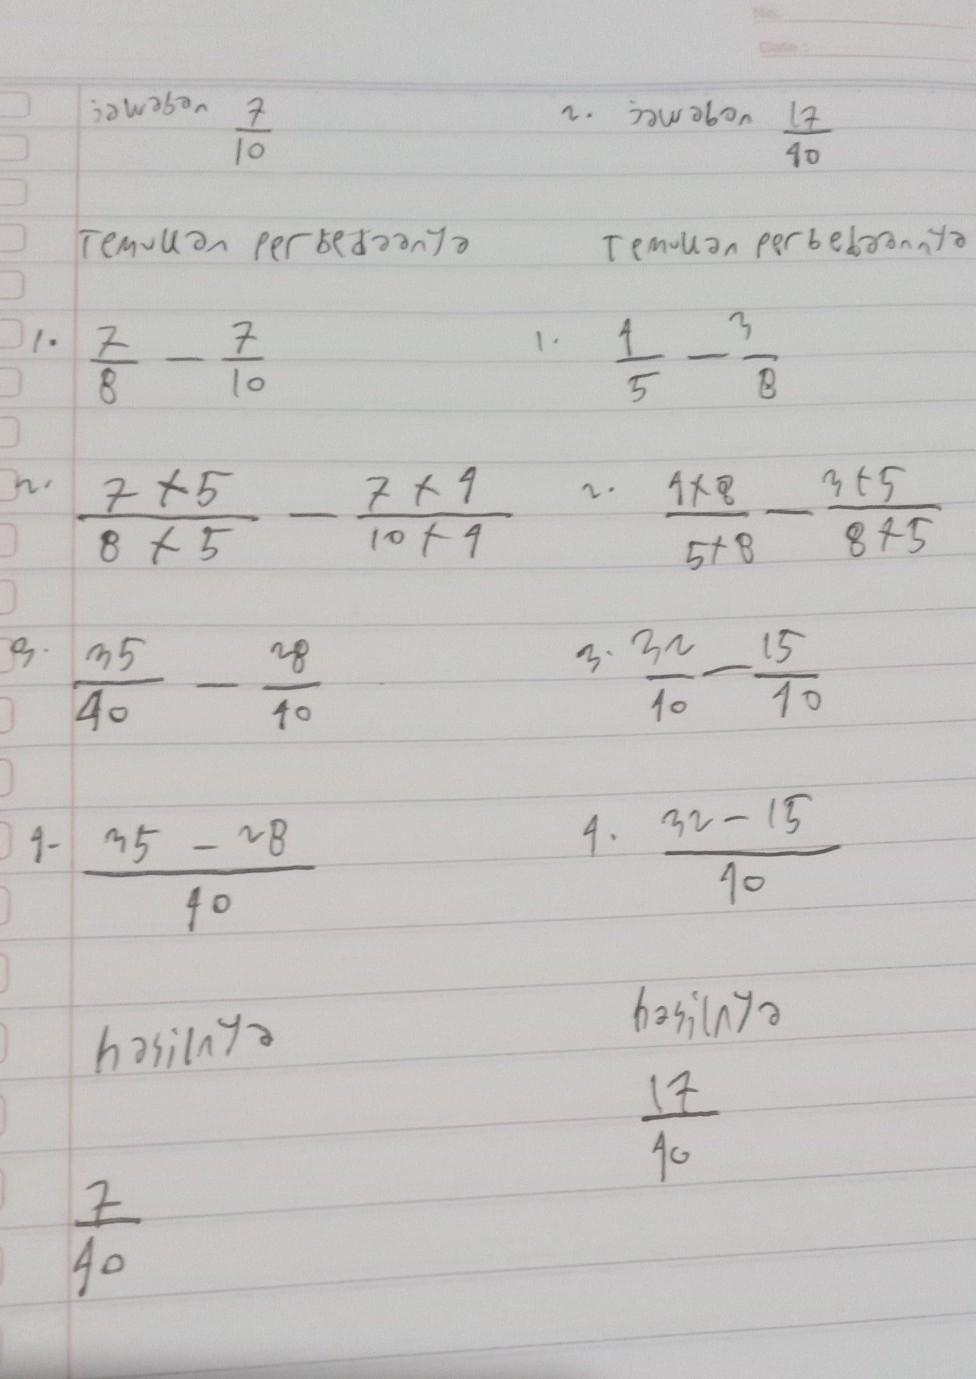 No.
Date :
jawaban 7/10
Temukan perbedaanya
1. 7/8 - 7/10
2. 7 × 5 / 8 × 5 - 7 × 4 / 10 × 4
3. 35/40 - 28/40
4. 35 - 28 / 40
hasilnya
7/40
2. jawaban 17/40
Temukan perbedaannya
1. 4/5 - 3/8
2. 4×8 / 5×8 - 3×5 / 8×5
3. 32/40 - 15/40
4. 32 - 15 / 40
hasilnya
17/40